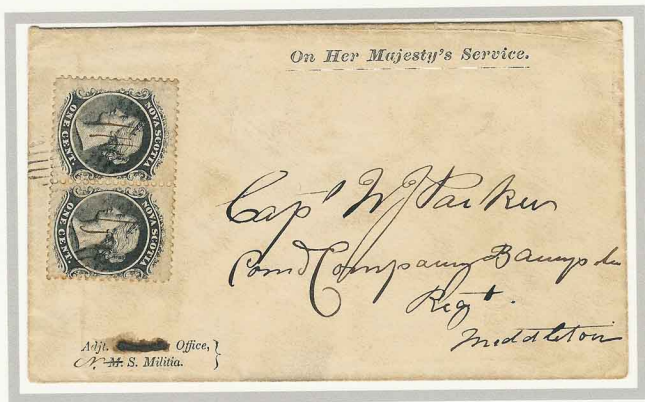 On Her Majesty's Service.
NOVA SCOTIA
ONE CENT.
NOVA SCOTIA
ONE CENT.
Capt W J Parker
Comd Company
Regt.
Middleton
Adjt. Office,
N. M. S. Militia.